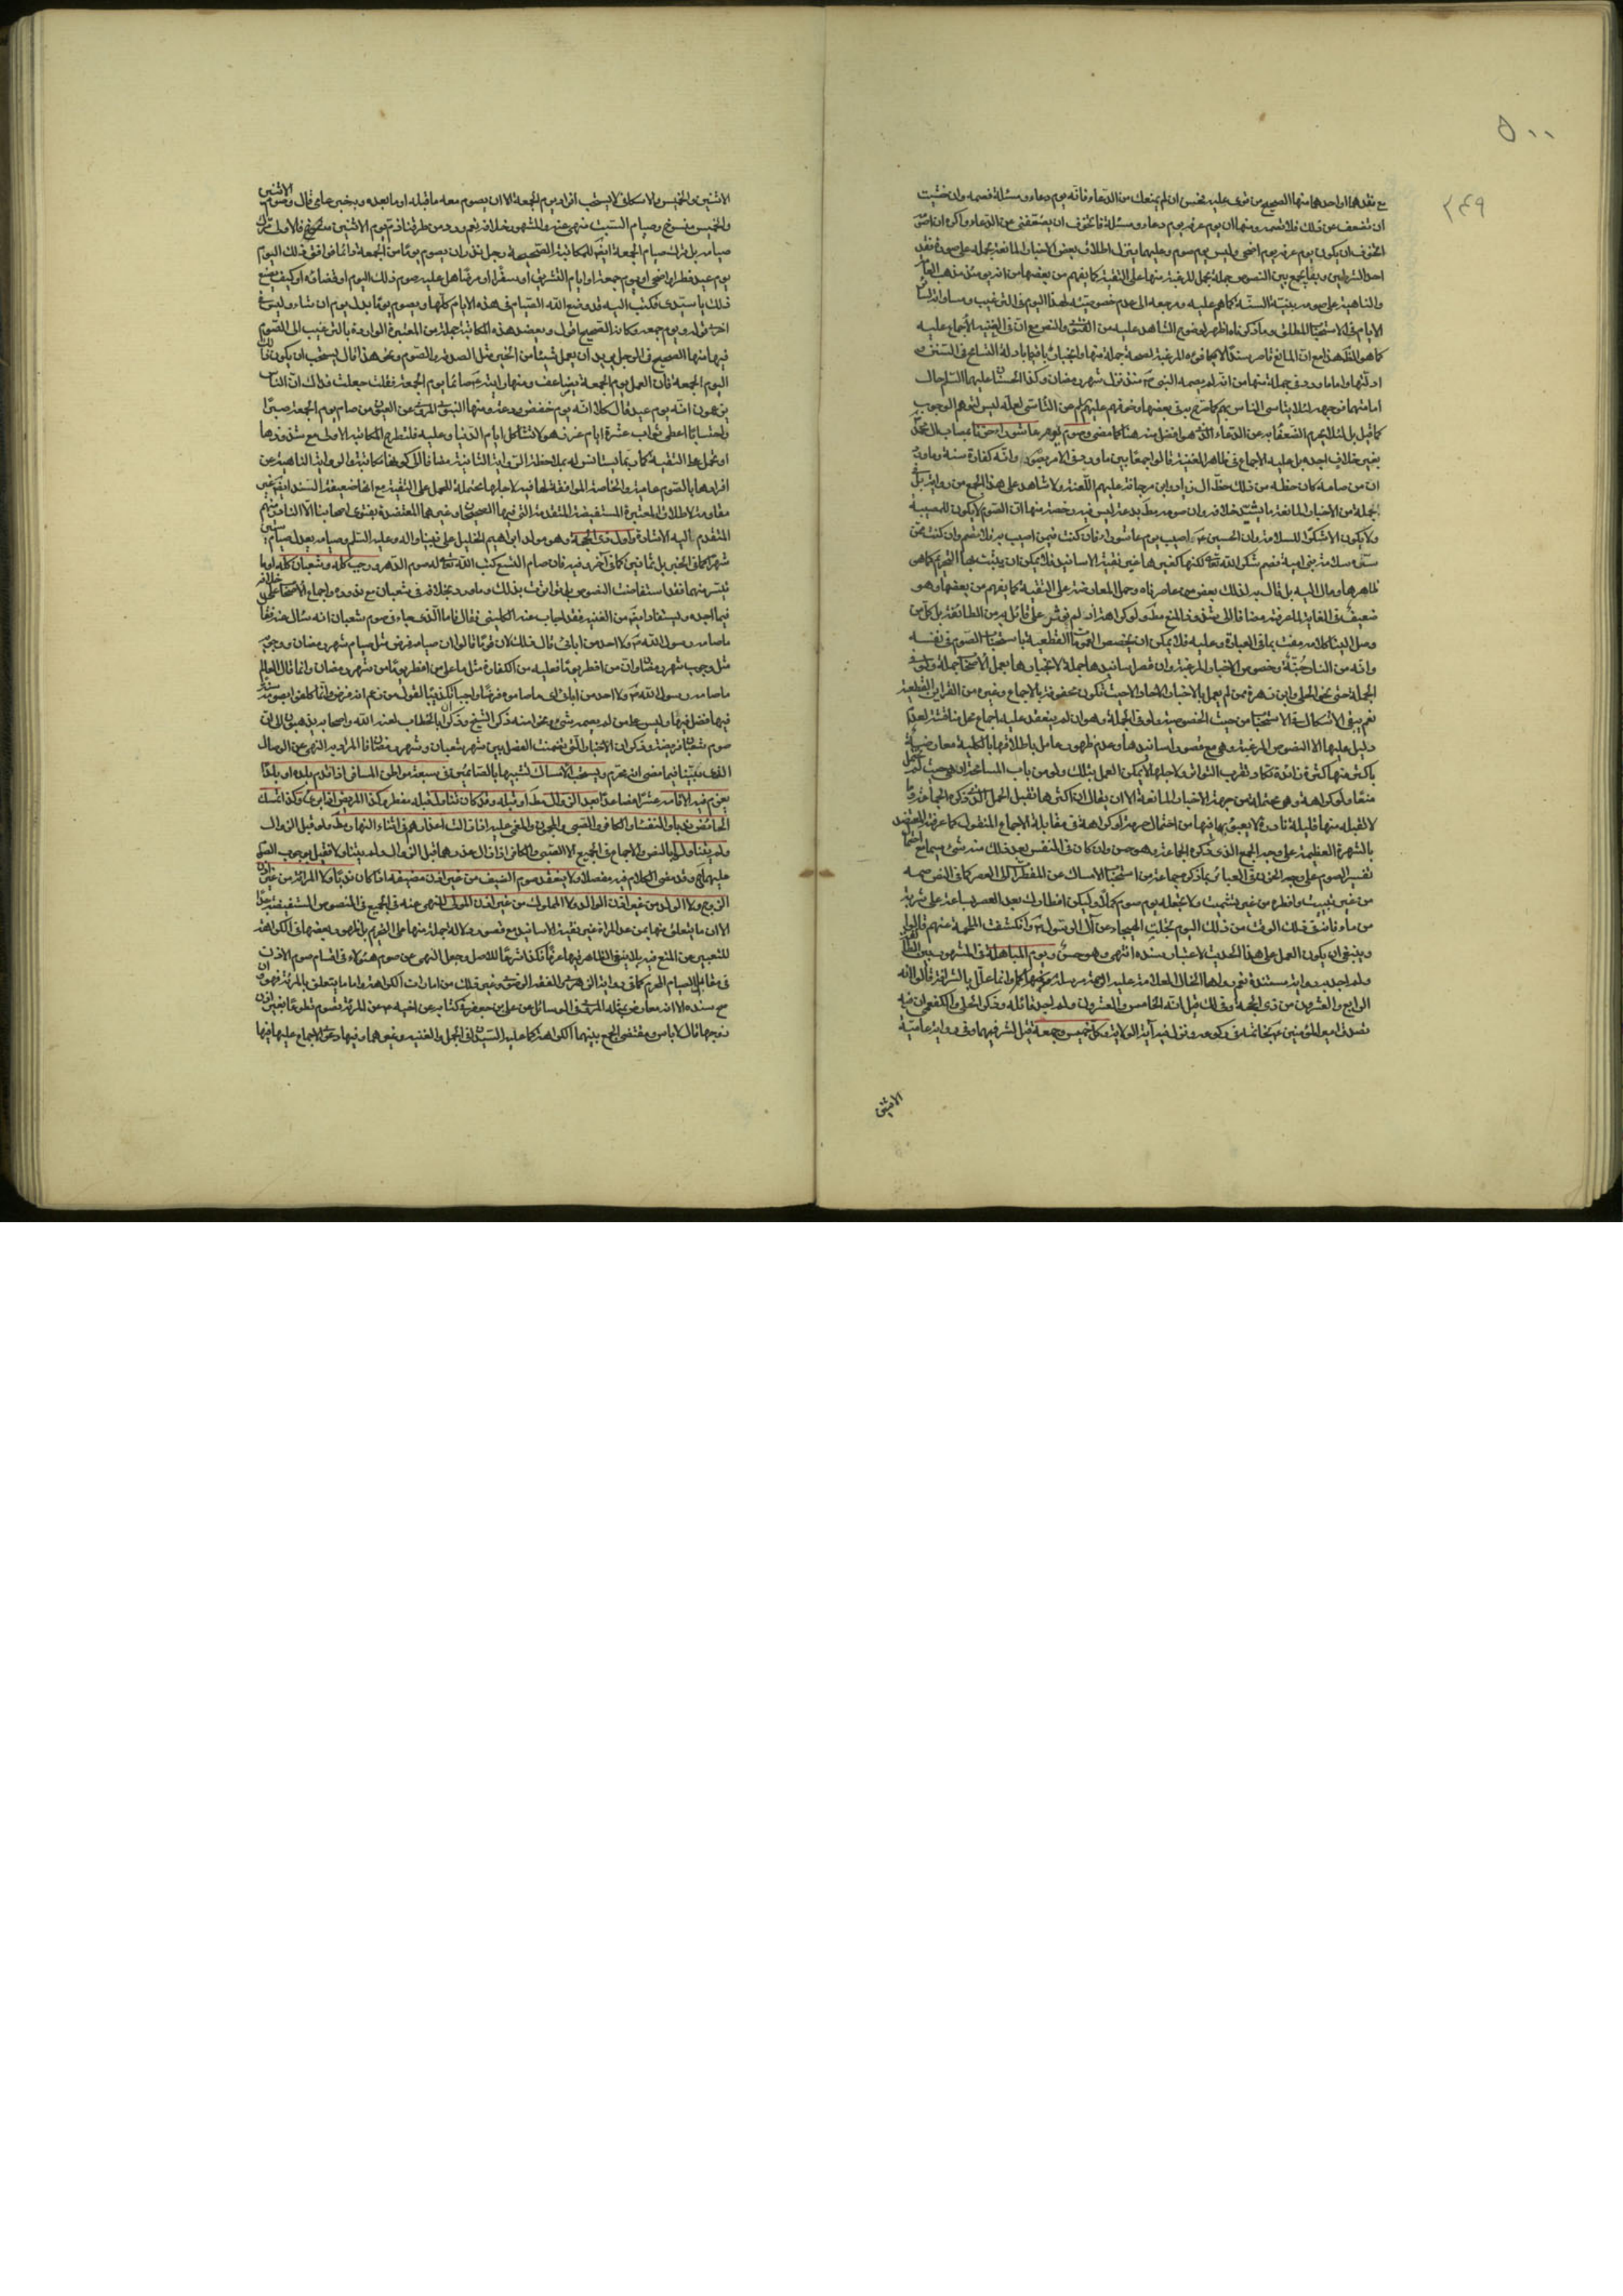 ٥٠٠
٢٤٩
مع فقدهما او احدهما منها الصحيح من قوى عليه فحسن ان لم يمنعك من الدعاء فانه يوم دعاء ومسئلة فصمه وان خشيت
ان تضعف عن ذلك فلا تصمه ومنها ان يوم عرفة يوم دعاء ومسئلة فاتخوف ان يضعفني عن الدعاء واكره ان اصومه
اتخوف ان يكون يوم عرفة يوم اضحى وليس بيوم صوم وعليهما ينزل اطلاق بعض الاخبار المانعة بحمله على صورة فقد
احد الشرطين وبهما يجمع بين النصوص جملة بحمل المرغبة منها على التقية كما يفهم من بعضها من انه يوم
والناهية على صومه بنية السنة كما هو عليه ومرجعه الى عدم خصوصية لهذا اليوم في الترغيب ومساواته لسائر
الايام في الاستحباب المطلق وما ذكرناه اظهر لوضوح الشاهد عليه من الفتوى والنص مع ان في الغنية الاجماع عليه
كما هو الظاهر هذا مع ان المانع قاصر سندا لا يكافؤ المرغبة لصحة جملة منها وانجبار باقيها بادلة التسامح في السنن
ادلتها واما ما ورد في جملة منها من انه لم يصمه النبي ص منذ نزل شهر رمضان وكذا الحسنان عليهما السلام حال
امامتهما فوجهه لئلا يتاسى الناس بهم كما صرح به في بعضها وخوفهم عليهم من التاسي لعله ليس لتوهم الوجوب
كما قيل بل لئلا يحرم الضعفاء به عن الدعاء الذي هو افضل منه هنا كما مضى وصوم يوم عاشوراء حزنا لمصاب آل محمد
بغير خلاف اجده بل عليه الاجماع في ظاهر الغنية قالوا جمعا بين ما ورد في الامر بصومه وانه كفارة سنة وما ورد
ان من صامه كان حظه من ذلك حظ آل زياد وابن مرجانة عليهم اللعنة ولا شاهد على هذا الجمع من رواية بل في
جملة من الاخبار المانعة ما يشيد خلافه وان صومه مطلقا بدعة ليس فيه رخصة منها ان الصوم لا يكون للمصيبة
ولا يكون الا شكرا للسلامة وان الحسين ع اصيب يوم عاشوراء فان كنت فيمن اصيب به فلا تصم وان كنت ممن
سره سلامة بني امية فصم شكرا لله تعالى لكنها كغيرها غير نقية الاسانيد فلا يمكن ان يثبت بها التحريم كما هو
ظاهرها ومال اليه بل قال به لذلك بعض من عاصرناه وحمل المعارضة على التقية كما يفهم من بعضها وهو
ضعيف في الغاية لما عرفته مضافا الى شذوذ المنع مطلقا ولو كراهة اذ لم نعثر على قائل به من الطائفة بل كل من
وصل الينا كلامه مفت بما في العبارة وعليه فلا يمكن ان يخصص العمومات القطعية باستحباب الصوم في نفسه
وانه من النار جنة وخصوص الاخبار المرغبة وان قصر اسانيدها جملة لانجبارها بعمل الاصحاب جملة ولو في
الجملة حتى نحو الحلي وابن زهرة ممن لم يعمل بالاخبار الاحاد الا حيث تكون محفوفة بالاجماع وغيره من القرائن القطعية
نعم يبقى الاشكال في الاستحباب من حيث الخصوصية ولو في الجملة وهو ان لم ينعقد عليه اجماع محل مناقشة لعدم
دليل عليها الا النصوص المرغبة وهي مع قصور اسانيدها وعدم ظهور عامل باطلاقها بالكلية معارضة
باكثر منها كثرة زائدة تكاد تقرب التواتر ولاجلها لا يمكن العمل بتلك ولو من باب المسامحة اذ هي حيث لم يحتمل
منعا ولو كراهة وهو محتملة من جهة الاخبار المانعة الا ان يقال ان اكثرها تقبل الحمل الذي ذكره الجماعة وما
لا تقبله منها قليلة نادرة لا يعبؤ بما فيها من احتمال حرمة او كراهة في مقابلة الاجماع المنقول كما عرفته المعتضد
بالشهرة العظيمة على وجه الجمع الذي ذكره الجماعة وهو حسن وان كان في النفس بعد ذلك منه شئ سيما مع احتمال
تفسير الصوم على وجه الحزن في العبائر بما ذكره جماعة من استحباب الامساك عن المفطرات الى العصر كما في النص صمه
من غير تبييت وافطره من غير تشميت ولا تجعله يوم صوم كملا وليكن افطارك بعد العصر بساعة على شربة
من ماء فانه في ذلك الوقت من ذلك اليوم تجلت الهيجاء عن آل الرسول ص وانكشفت الملحمة عنهم قالوا
وينبغي ان يكون العمل على هذا الحديث لاعتبار سنده انتهى وهو حسن ويوم المباهلة في المشهور بين الطائفة
ولم اجد به رواية مسندة نعم رواها الخال العلامة عليه الرحمة مرسلة
الرابع والعشرون من ذي الحجة وفي ذلك قيل انه الخامس والعشرون ولم اجد قائله وذكر الحلي والكفعمي ان فيه
تصدق امير المؤمنين ع بخاتمه في ركوعه ونزل فيه آية الولاية وكل خميس وجمعة قيل لشرفهما وفي رواية عامية
الاثنين
الاثنين والخميس والاسكافي لا يستحب افراد يوم الجمعة الا ان يصوم معه ما قبله او ما بعده وبخبر عامي قال وصوم الاثنين
والخميس منسوخ وصيام السبت منهي عنه والمشهور خلافه نعم ورد من طرقنا ذم يوم الاثنين فالاولى ترك
صيامه بل ترك صيام الجمعة ايضا للمكاتبة الصحيحة رجل نذر ان يصوم يوما من الجمعة دائما فوافق ذلك اليوم
يوم عيد فطر او اضحى او يوم جمعة او ايام التشريق او سفرا او مرضا هل عليه صوم ذلك اليوم او قضاؤه او كيف يصنع
ذلك يا سيدي فكتب اليه قد وضع الله الصيام في هذه الايام كلها ويصوم يوما بدل يوم ان شاء وليس في
اخرى قوله ويوم جمعة وكانه الصحيح اقول ويعضد هذه المكاتبة جملة من المعتبرة الواردة بالترغيب الى الصوم
فيها منها الصحيح في الرجل يريد ان يعمل شيئا من الخير مثل الصدقة والصوم ونحو هذا قال يستحب ان يكون ذلك
اليوم الجمعة فان العمل يوم الجمعة يضاعف ومنها رايته ع صائما يوم الجمعة فقلت جعلت فداك ان الناس
يزعمون انه يوم عيد قال كلا انه يوم خفض ودعة ومنها النبوي المروي عن العيون من صام يوم الجمعة صبرا
واحتسابا اعطى ثواب عشرة ايام غر زهر لا تشاكل ايام الدنيا وعليه فلتطرح المكاتبة الاولى مع شذوذها
او تحمل على التقية كما ربما يستانس له بملاحظة الرواية الثانية مضافا الى كونها مكاتبة والرواية الناهية عن
افرادها بالصوم عامية والخاصة الموافقة لها فيه لاجلها محتملة للحمل على التقية مع انها ضعيفة السند ايضا غير
مقاومة لاطلاق المعتبرة المستفيضة المتقدمة التي فيها الصحيحان وغيرهما المعتضدة بفتوى اصحابنا الا النادر منهم
المتقدم اليه الاشارة واول ذي الحجة وهو مولد ابراهيم الخليل على نبينا واله وعليه السلم وصيامه يعدل صيام ستين
شهرا كما في الخبر بل ثمانين كما في آخر وفيه فان صام التسع كتب الله تعالى له صوم الدهر ورجب كله وشعبان كله او ما
تيسر منهما فقد استفاضت النصوص بل تواترت بذلك وما ورد بخلافه في شعبان مع ندوره واجماع الاصحاب على خلافه
فيما اجده ويستفاد ايضا من الغنية فقد اجاب عنه الكليني فقال فاما الذي جاء في صوم شعبان انه سئل عنه فقال
ما صامه رسول الله ص ولا احد من ابائي قال ذلك لان قوما قالوا ان صيامه فرض مثل صيام شهر رمضان ووجوبه
مثل وجوب شهر رمضان وان من افطر يوما فعليه من الكفارة مثل ما على من افطر يوما من شهر رمضان وانما قال العالم
ما صامه رسول الله ص ولا احد من ابائي اي ما صاموه فرضا واجبا تكذيبا لقول من زعم انه فرض وانما كانوا يصومونه سنة
فيها فضل فيها وليس على من لم يصمه شئ ونحوا منه ذكر الشيخ وذكر ان ابا الخطاب لعنه الله واصحابه يذهبون الى ان
صوم شعبان فريضة وذكر ان الاخبار التي تضمنت الفصل بين شهر شعبان وشهر رمضان فالمراد به النهي عن الوصال
الذي بينا فيما مضى انه محرم ويستحب الامساك تشبيها بالصائمين في سبعة مواطن المسافر اذا قدم بلده او بلدا
يعزم فيه الاقامة عشرا فصاعدا بعد الزوال مطلقا او قبله وقد كان تناول قبله مفطرا وكذا المريض اذا برئ وكذا تمسك
الحائض ندبا والنفساء والكافر والصبي والمجنون والمغمى عليه اذا زالت اعذارهم في اثناء النهار مطلقا ولو قبل الزوال
ولم يتناولوا بالنص والاجماع في الجميع الا الصبي والكافر اذا زال عذرهما قبل الزوال ولم يتناولا فقيل بوجوب الصوم
عليهما ح وقد مضى الكلام فيه مفصلا ولا ينعقد صوم الضيف من غير اذن مضيفه اذا كان ندبا ولا المراة من غير اذن
الزوج ولا الولد من غير اذن الوالد ولا المملوك من غير اذن المولى للنهي عنه في الجميع في النصوص المستفيضة جدا
الا ان ما يتعلق منها بمن عدا المراة غير نقية الاسانيد مع قصور دلالة جملة منها على التحريم بل ظهور بعضها في الكراهة
للتعبير عن المنع فيه بلا ينبغي الظاهر فيها عرفا فكذا شرعا للاصل وجعل النهي عن صوم هؤلاء في اقسام صوم الاذن
في مقابل الصيام المحرم كما في رواية الزهري والفقه الرضوي وغير ذلك من امارات الكراهة واما ما يتعلق بالمراة فهو وان
صح سنده الا انه معارض بمثله المروي في الوسائل عن علي بن جعفر في كتابه عن اخيه ع عن المراة تصوم تطوعا بغير اذن
زوجها قال لا باس ومقتضى الجمع بينهما الكراهة كما عليه السيدان في الجمل والغنية وغيرهما وفيها دعوى الاجماع عليه فيها